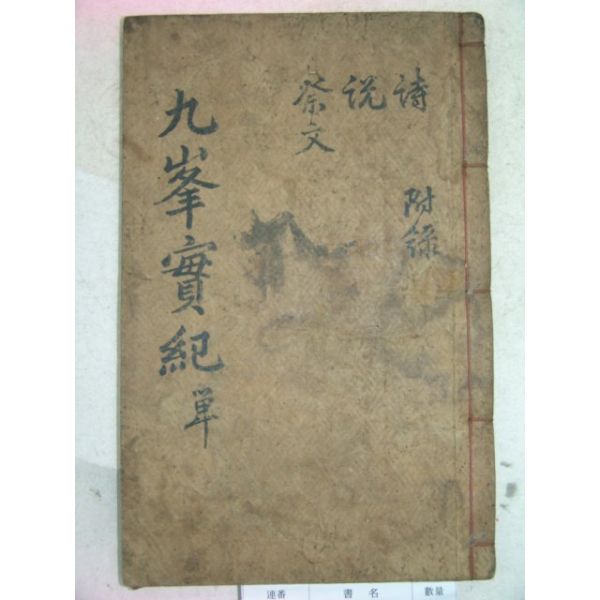 詩
說
祭文
附錄
九峯實紀 単
連番 書名 數量